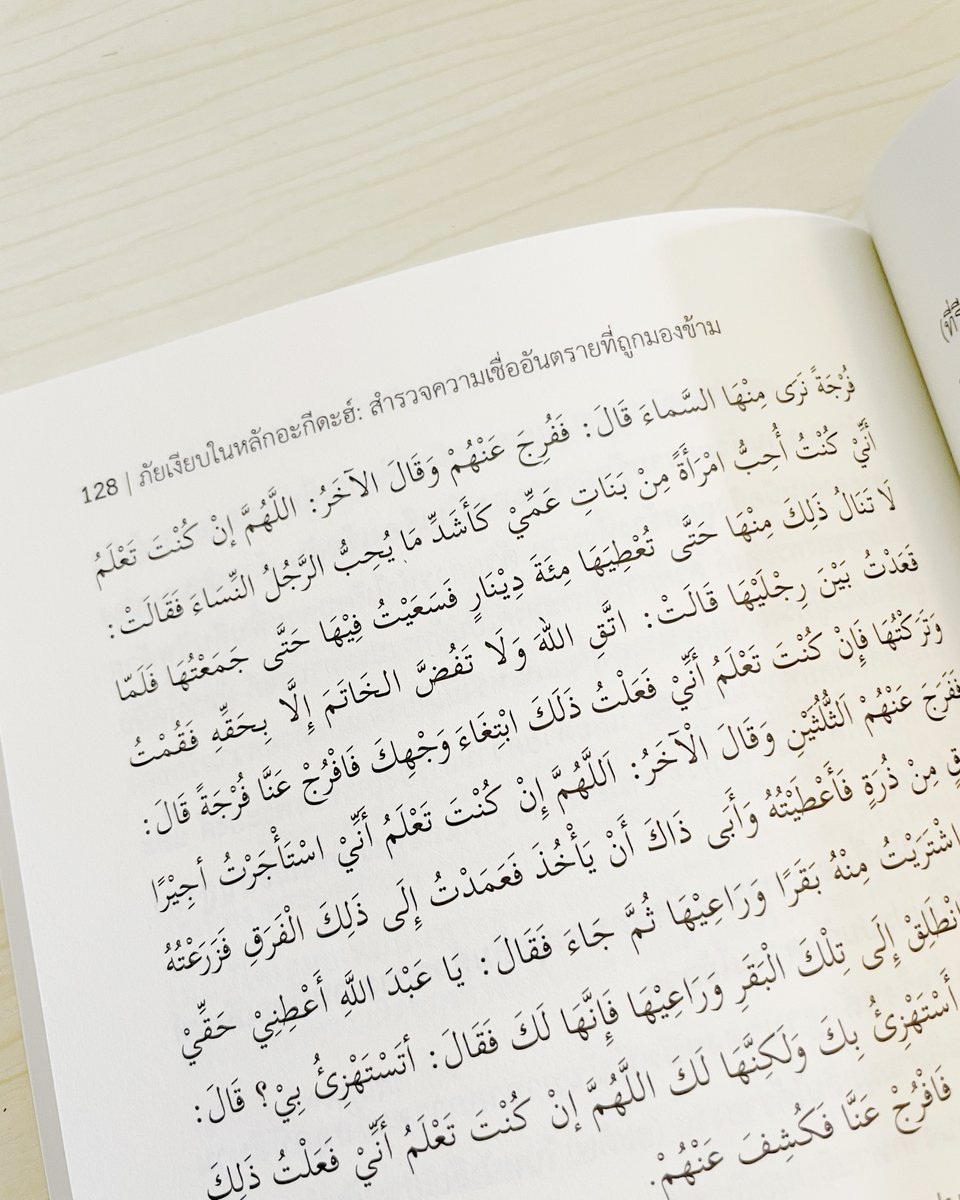 128 | ภัยเงียบในหลักอะกีดะฮ์: สำรวจความเชื่ออันตรายที่ถูกมองข้าม
فُرْجَةً نَرَى مِنْهَا السَّماءَ قَالَ: فَفُرِجَ عَنْهُمْ وَقَالَ الآخَرُ: اللَّهُمَّ إنْ كُنْتَ تَعْلَمُ
أَنِّيْ كُنْتُ أُحِبُّ امْرَأَةً مِنْ بَنَاتِ عَمِّيْ كَأَشَدِّ مَا يُحِبُّ الرَّجُلُ النِّسَاءَ فَقَالَتْ:
لَا تَنَالُ ذَلِكَ مِنْهَا حَتَّى تُعْطِيَهَا مِئَةَ دِيْنَارٍ فَسَعَيْتُ فِيْهَا حَتَّى جَمَعْتُهَا فَلَمّا
قَعَدْتُ بَيْنَ رِجْلَيْهَا قَالَتْ: اتَّقِ اللهَ وَلَا تَفُضَّ الخَاتَمَ إِلَّا بِحَقِّهِ فَقُمْتُ
وَتَرَكْتُهَا فَإِنْ كُنْتَ تَعْلَمُ أَنِّيْ فَعَلْتُ ذَلَكَ ابْتِغَاءَ وَجْهِكَ فَافْرُجْ عَنَّا فُرْجَةً قَالَ:
فَفَرَجَ عَنْهُمْ الثُّلُثَيْنِ وَقَالَ الْآخَرُ: اَللَّهُمَّ إِنْ كُنْتَ تَعْلَمُ أَنِّيْ اسْتَأْجَرْتُ أجِيْرًا
مِنْ ذُرَةٍ فَأَعْطَيْتُهُ وَأَبَى ذَاكَ أَنْ يَأْخُذَ فَعَمَدْتُ إِلَى ذَلِكَ الْفَرَقِ فَزَرَعْتُهُ
اشْتَرَيْتُ مِنْهُ بَقَرًا وَرَاعِيْهَا ثُمَّ جَاءَ فَقَالَ: يَا عَبْدَ اللَّهِ أَعْطِنِيْ حَقِّيْ
انْطَلِقْ إِلَى تِلْكَ الْبَقَرِ وَرَاعِيْهَا فَإِنَّهَا لَكَ فَقَالَ: أتَسْتَهْزِئُ بِيْ؟ قَالَ:
أَسْتَهْزِئُ بِكَ وَلَكِنَّهَا لَكَ اللَّهُمَّ إنْ كُنْتَ تَعْلَمُ أَنِّيْ فَعَلْتُ ذَلِكَ
فَافْرُجْ عَنَّا فَكُشِفَ عَنْهُمْ.